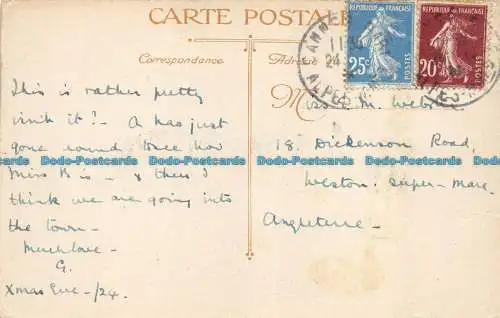 CARTE POSTALE
Correspondance
Adresse
This is rather pretty
isn't it? - A has just
gone round to see how
Miss B is - & then I
think we are going into
the town -
Much love -
G.
Xmas Eve - /24.
Miss M. Webb
18. Dickenson Road,
Weston-super-Mare
Angleterre -
REPUBLIQUE FRANÇAISE
25c
POSTES
REPUBLIQUE FRANÇAISE
20c
POSTES
CANNES
24
Dodo-Postcards Dodo-Postcards Dodo-Postcards Dodo-Postcards